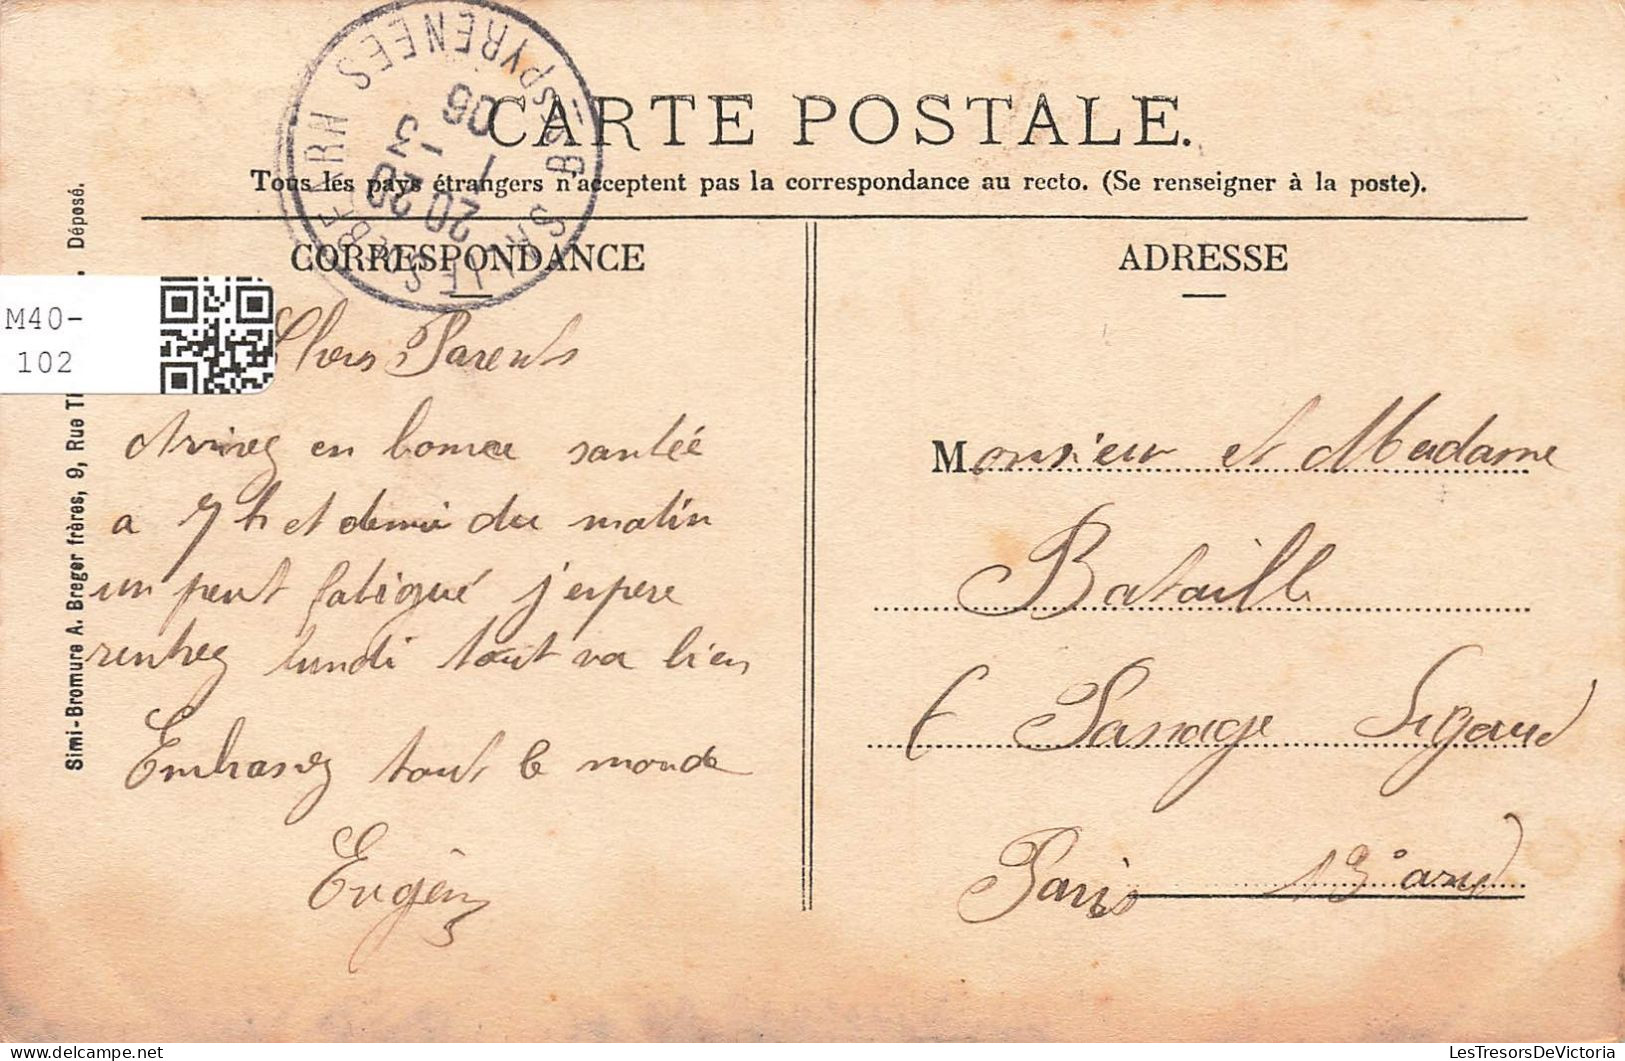 CARTE POSTALE.
Tous les pays étrangers n'acceptent pas la correspondance au recto. (Se renseigner à la poste).
CORRESPONDANCE
Chers Parents
Arrivez en bonne santéé
a 7 h et demi du matin
un peut fatigué j'espere
rentrez lundi tout va bien
Embrassez tout le monde
Eugène
ADRESSE
Monsieur et Madame
Bataille
6 Passage Sigaud
Paris 13e ard
Simi-Bromure A. Breger frères, 9, Rue Déposé.
BEARN BSSES PYRENEES
20 20
1 - 3
06
M40-
102
LesTresorsDeVictoria